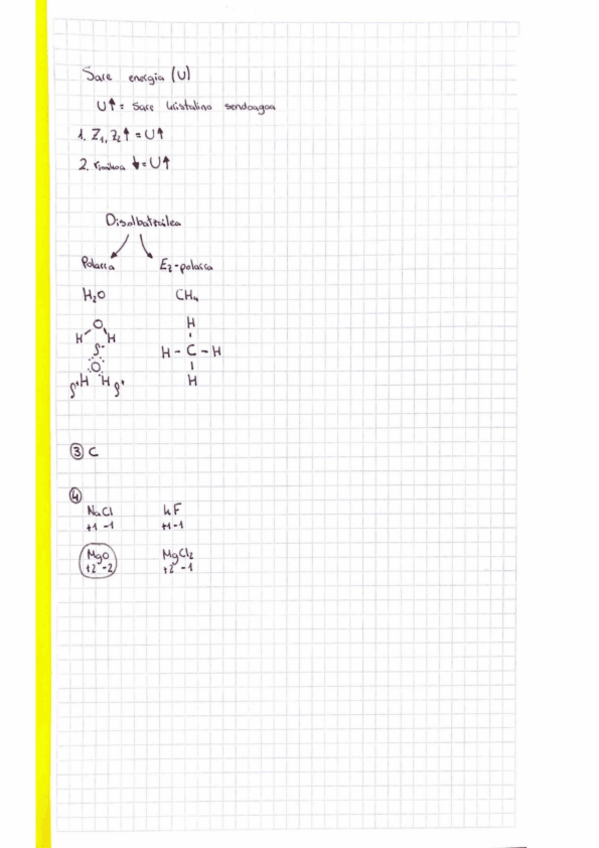 Sare energia (U)
U↑ = Sare kristalino sendoagoa
1. Z₁, Z₂↑ = U↑
2. ↓ = U↑
Disolbatzailea
Polarra Ez-polarra
H₂O CH₄
O
H H
H
H - C - H
H
δ-
O
δ+ H H δ+
③ C
④
NaCl kF
+1 -1 +1 -1
MgO MgCl₂
+2 -2 +2 -1